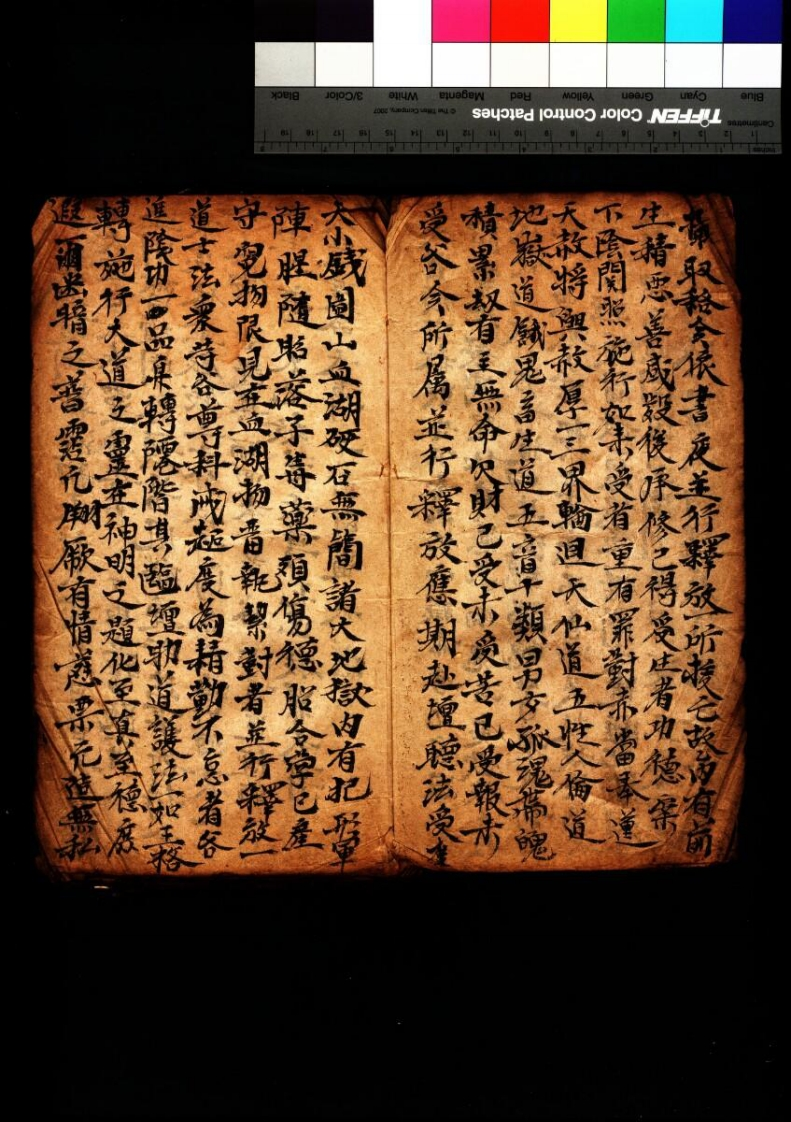 取籍舍依書夜並行釋放一所拔亡故內有前
生積悪善咸毀後承修己得受生者功德案
下陰関照施行如未受有重有罪對赤當奉遵
天赦將興赦厚一三界輪迴天仙道五性人倫道
地獄道餓鬼畜生道五音十類男女孤魂滯魄
積累劫有主無命欠財已受未受苦已受報未
受各令所属並行釋放應期赴壇聽法受
大小鉄圍山血湖硬石無間諸大地獄內有犯形軍
陣腥隨胎落子毒藥頭傷穗胎含孕已產
守兒物限見在血湖物音執繫對者並行釋放一
道士法衆等各尊科戒超度為精勤不怠者各
進陰功一品皐轉階其壇助道護法一如玉格
轉施行大道之靈在神明之題化至真至德度
遐爾幽暗之音霑凢厥有情慈元造無私
TIFFEN Color Control Patches
© The Tiffen Company, 2007
Blue Cyan Green Yellow Red Magenta White 3/Color Black
Centimetres
Inches